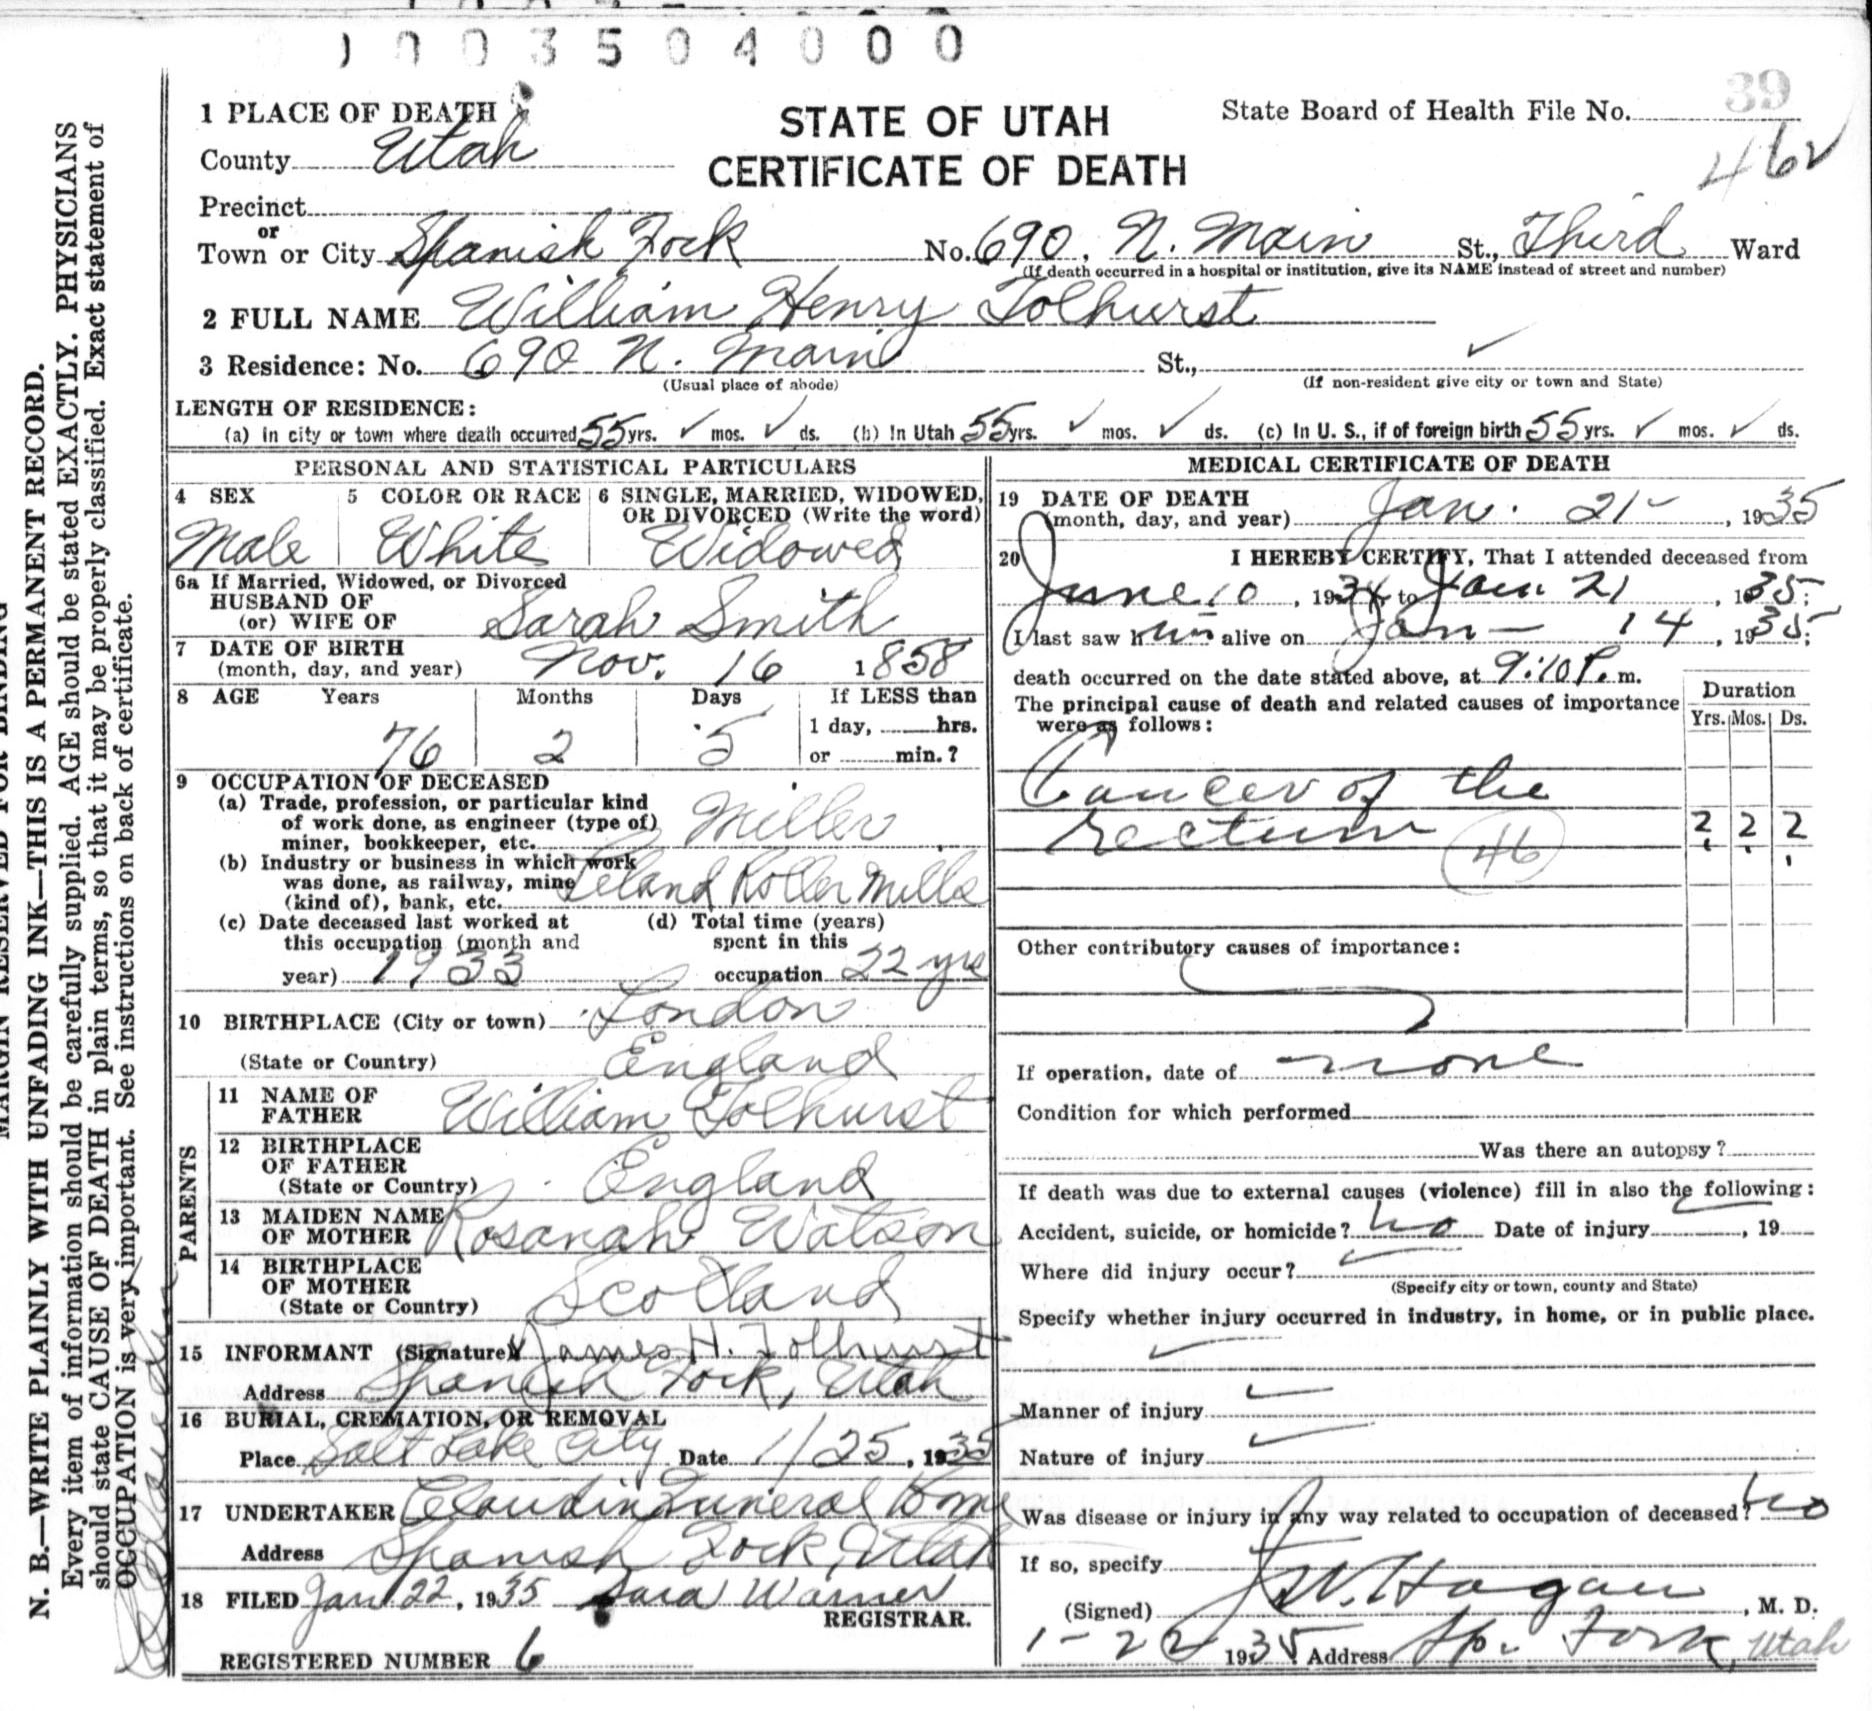 0003504000
39
1 PLACE OF DEATH
STATE OF UTAH
CERTIFICATE OF DEATH
State Board of Health File No.
46
County Utah
Precinct
or
Town or City Spanish Fork No. 690, N. Main St., Third Ward
(If death occurred in a hospital or institution, give its NAME instead of street and number)
2 FULL NAME William Henry Tolhurst
3 Residence: No. 690 N. Main St.,
(Usual place of abode) (If non-resident give city or town and State)
LENGTH OF RESIDENCE:
(a) In city or town where death occurred 55 yrs. ✓ mos. ✓ ds. (b) In Utah 55 yrs. ✓ mos. ✓ ds. (c) In U. S., if of foreign birth 55 yrs. ✓ mos. ✓ ds.
PERSONAL AND STATISTICAL PARTICULARS
4 SEX
Male
5 COLOR OR RACE
White
6 SINGLE, MARRIED, WIDOWED, OR DIVORCED (Write the word)
Widowed
6a If Married, Widowed, or Divorced
HUSBAND OF
(or) WIFE OF Sarah Smith
7 DATE OF BIRTH
(month, day, and year) Nov. 16 1858
8 AGE Years Months Days If LESS than
76 2 5 1 day, hrs.
or min.?
9 OCCUPATION OF DECEASED
(a) Trade, profession, or particular kind
of work done, as engineer (type of)
miner, bookkeeper, etc. Miller
(b) Industry or business in which work
was done, as railway, mine
(kind of), bank, etc. Leland Roller Mills
(c) Date deceased last worked at
this occupation (month and
year) 1933
(d) Total time (years)
spent in this
occupation 22 yrs
10 BIRTHPLACE (City or town) London
(State or Country) England
PARENTS
11 NAME OF
FATHER William Tolhurst
12 BIRTHPLACE
OF FATHER
(State or Country) England
13 MAIDEN NAME
OF MOTHER Rosanah Watson
14 BIRTHPLACE
OF MOTHER
(State or Country) Scotland
15 INFORMANT (Signature) James H. Tolhurst
Address Spanish Fork, Utah
16 BURIAL, CREMATION, OR REMOVAL
Place Salt Lake City Date 1/25, 1935
17 UNDERTAKER Claudin Funeral Home
Address Spanish Fork, Utah
18 FILED Jan 22, 1935 Sara Warner
REGISTRAR.
REGISTERED NUMBER 6
MEDICAL CERTIFICATE OF DEATH
19 DATE OF DEATH
(month, day, and year) Jan. 21-, 1935
20 I HEREBY CERTIFY, That I attended deceased from
June 10, 1934, to Jan 21, 1935;
I last saw him alive on Jan- 14, 1935;
death occurred on the date stated above, at 9:10 P. m.
The principal cause of death and related causes of importance
were as follows:
Duration
Yrs. Mos. Ds.
Cancer of the
rectum 46 2 2 2
Other contributory causes of importance:
If operation, date of none
Condition for which performed
Was there an autopsy?
If death was due to external causes (violence) fill in also the following:
Accident, suicide, or homicide? no Date of injury , 19
Where did injury occur?
(Specify city or town, county and State)
Specify whether injury occurred in industry, in home, or in public place.
Manner of injury
Nature of injury
Was disease or injury in any way related to occupation of deceased? no
If so, specify
(Signed) J. W. Hagan, M. D.
1-22 1935 Address Sp. Fork, Utah
MARGIN RESERVED FOR BINDING
N. B.—WRITE PLAINLY WITH UNFADING INK—THIS IS A PERMANENT RECORD.
Every item of information should be carefully supplied. AGE should be stated EXACTLY. PHYSICIANS
should state CAUSE OF DEATH in plain terms, so that it may be properly classified. Exact statement of
OCCUPATION is very important. See instructions on back of certificate.